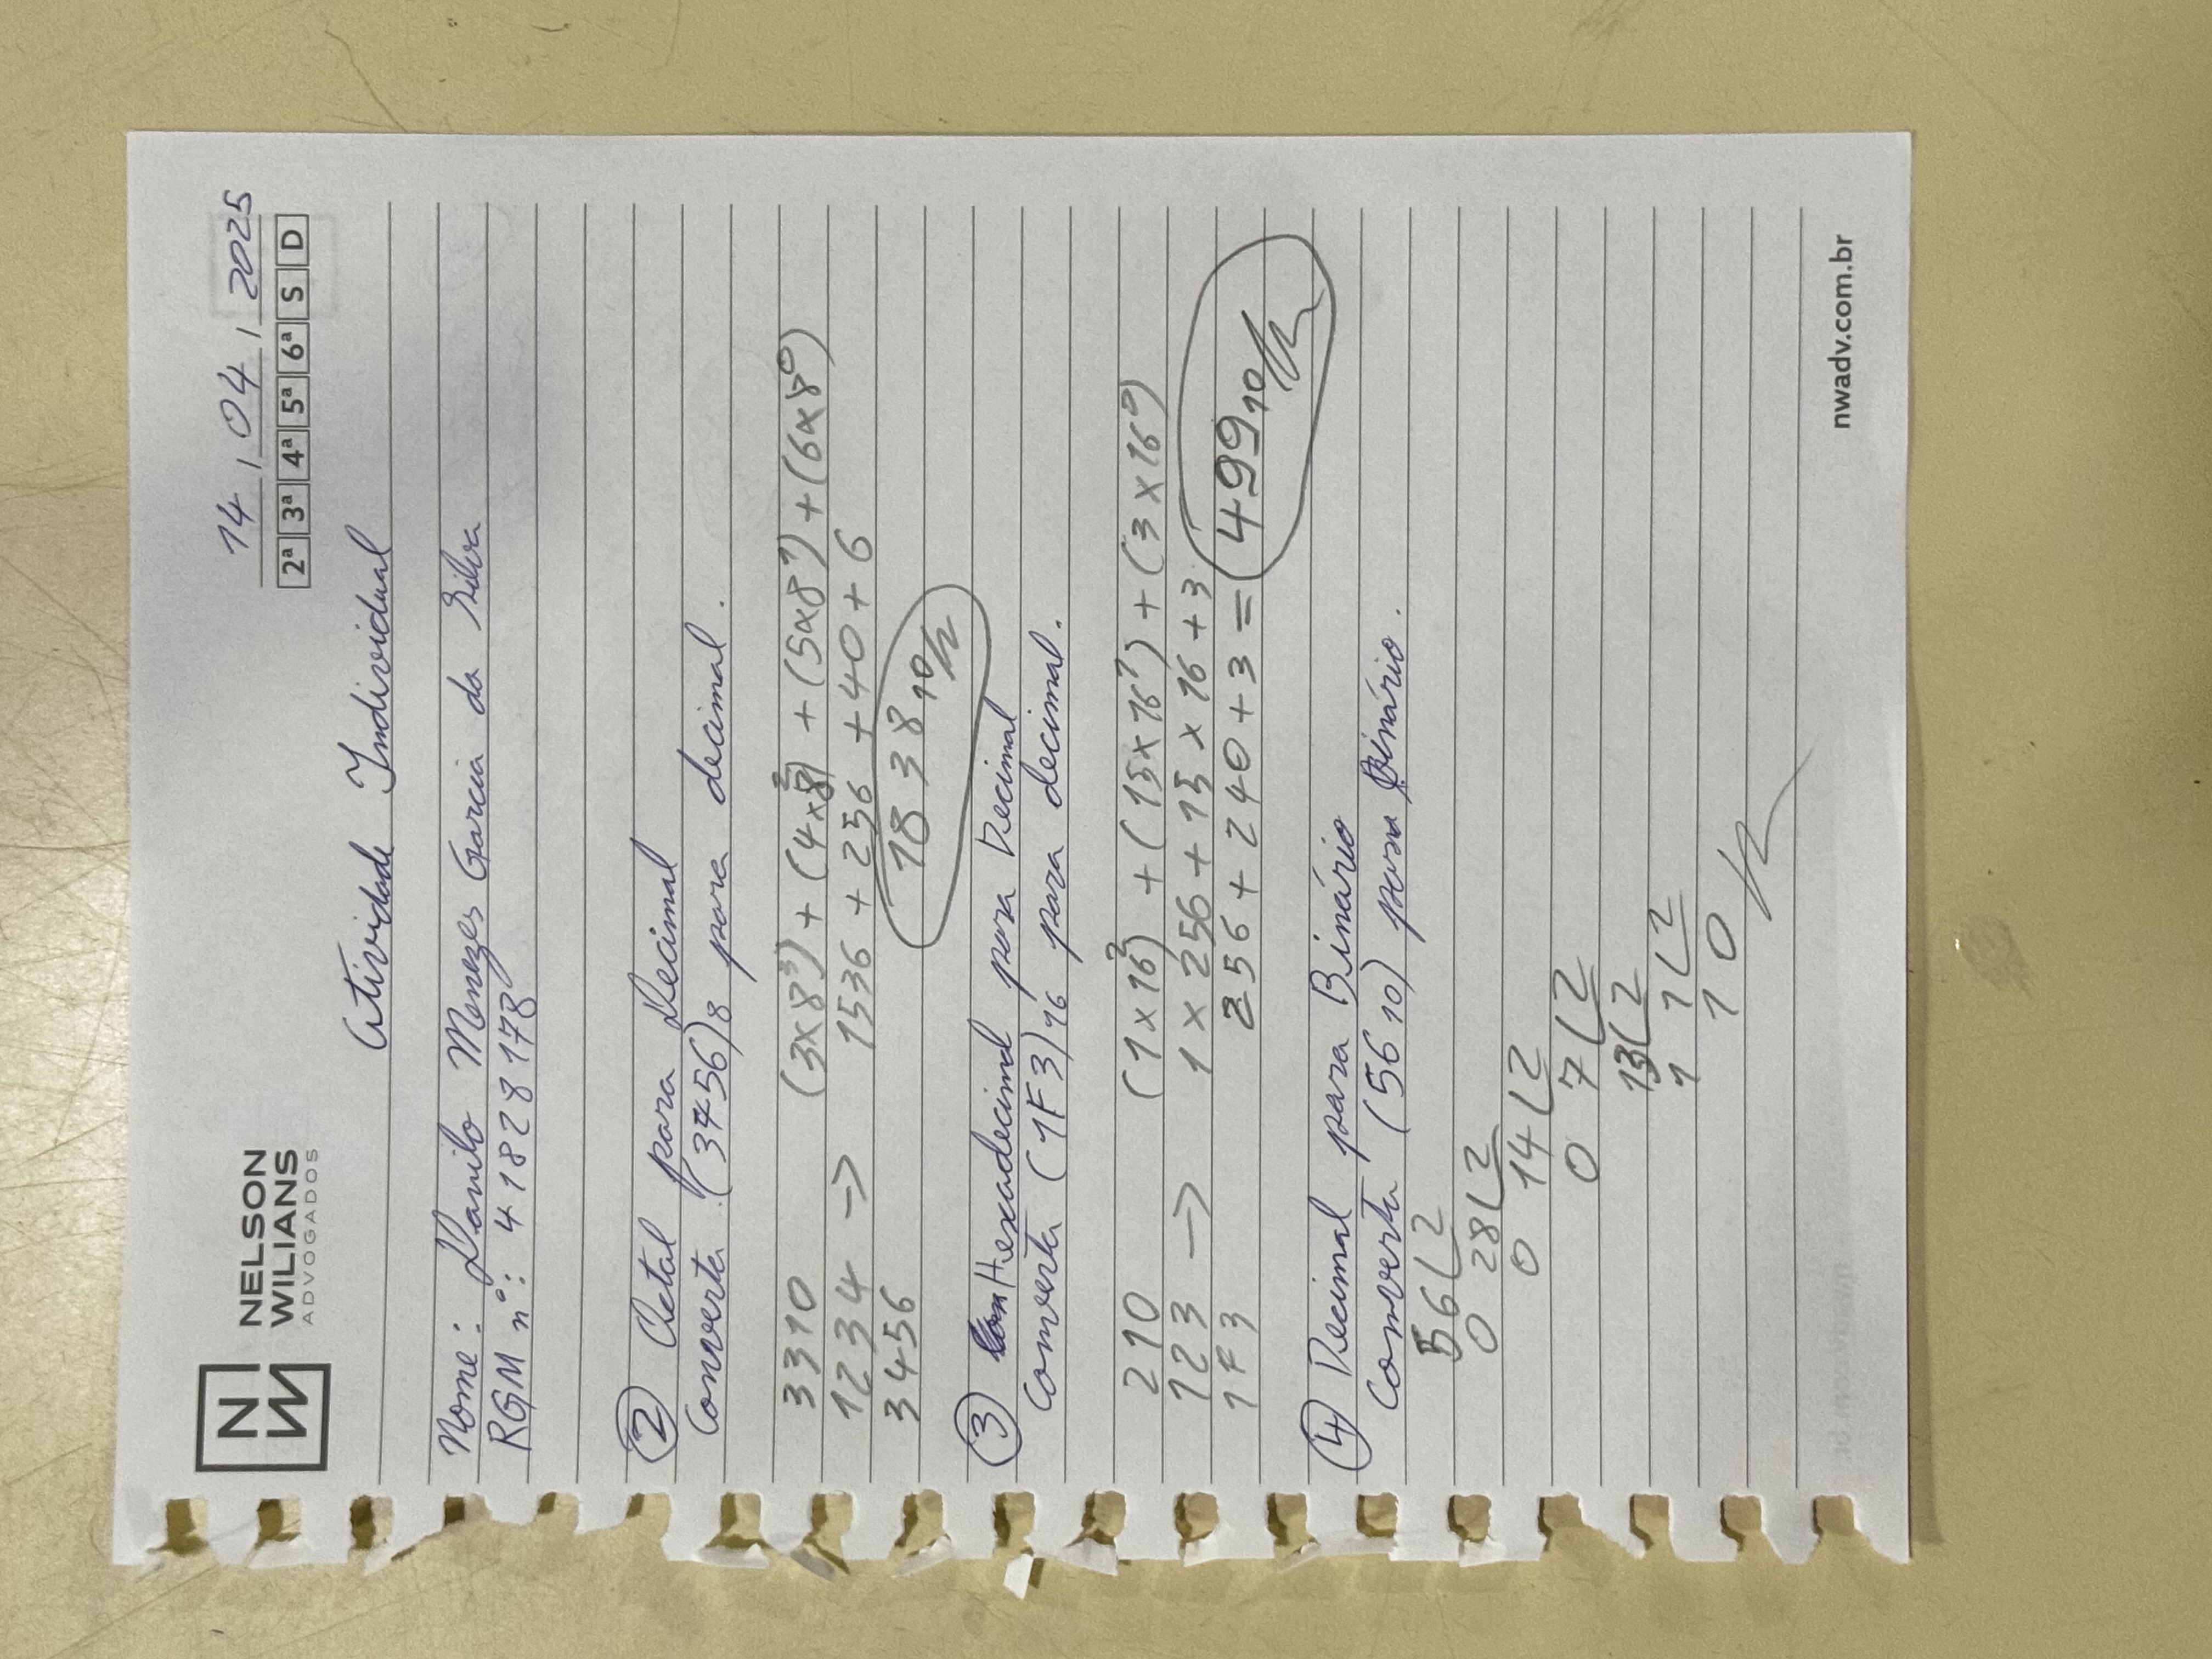 N
W
NELSON
WILIANS
ADVOGADOS
14 / 04 / 2025
2ª 3ª 4ª 5ª 6ª S D
Atividade Individual
Nome: Danilo Menezes Garcia da Silva
RGM nº: 41828178
② Octal para Decimal
Converta (3456)8 para decimal.
3310 (3x8³) + (4x8²) + (5x8¹) + (6x8⁰)
1234 -> 1536 + 256 + 40 + 6
3456 1838 10//
③ Hexadecimal para Decimal
Converta (1F3)16 para decimal.
210 (1x16²) + (15x16¹) + (3x16⁰)
123 -> 1 x 256 + 15 x 16 + 3
1F3 256 + 240 + 3 = 499 10//
④ Decimal para Binário
Converta (56 10) para Binário.
56 2
0 28 2
0 14 2
0 7 2
1 3 2
1 1 2
1 0 //
nwadv.com.br